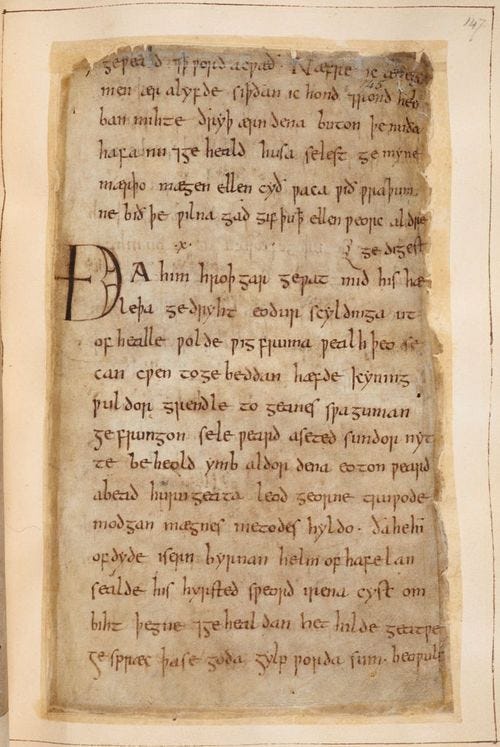 147
geƿeald ⁊ þ ƿord acƿæð . Næfre ic ænegū
men ær alyfde siþðan ic hond ⁊rond heb
ban mihte ðryþ ærn dena buton þe nuða
hafa nu ⁊ge heald husa selest ge myne
mærþo mægen ellen cyð ƿaca ƿið ƿraþum
ne bið þe ƿilna gad gif þu þ ellen ƿeorc aldre
.x. ge digest
ÐA him hroþgar geƿat mid his hæ
leþa gedryht eodur scyldinga ut
of healle ƿolde ƿig fruma ƿealhþeo se
can cƿen toge beddan hæfde kyning
ƿuldor grendle to geanes sƿa guman
ge frungon sele ƿeard aseted sundor nyt
te beheold ymb aldor dena eoton ƿeard
abead huru geata leod georne truƿode
modgan mægnes metodes hyldo . ða he hī
of dyde isern byrnan helm of hafelan
sealde his hyrsted sƿeord irena cyst om
biht þegne ⁊ge heal dan het hilde geatƿe
ge spræc þase goda gylp ƿorda sum . beoƿulf